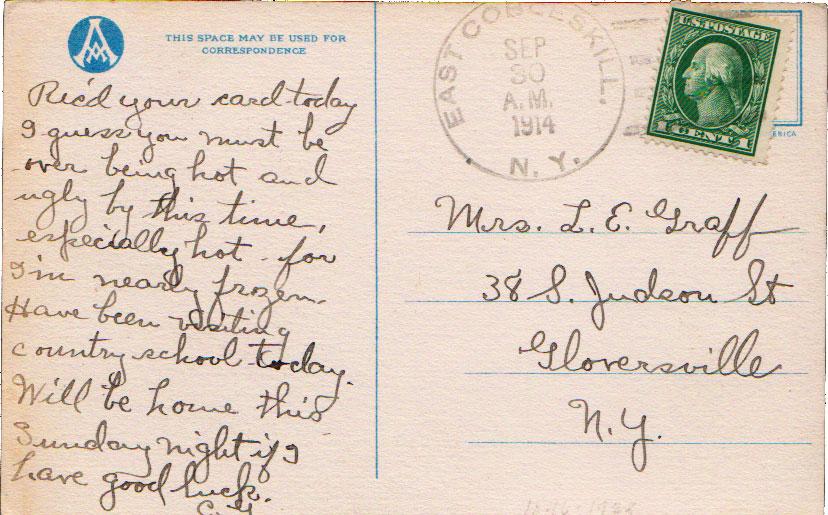 THIS SPACE MAY BE USED FOR
CORRESPONDENCE
Rec'd your card today
I guess you must be
over being hot and
ugly by this time,
especially hot - for
I'm nearly frozen.
Have been visiting
country school today.
Will be home this
Sunday night if I
have good luck.
EAST COBLESKILL.
SEP
30
A.M.
1914
N. Y.
U.S. POSTAGE
1 CENT 1
ERICA
Mrs. L. E. Graff
38 S. Judson St
Gloversville
N.Y.